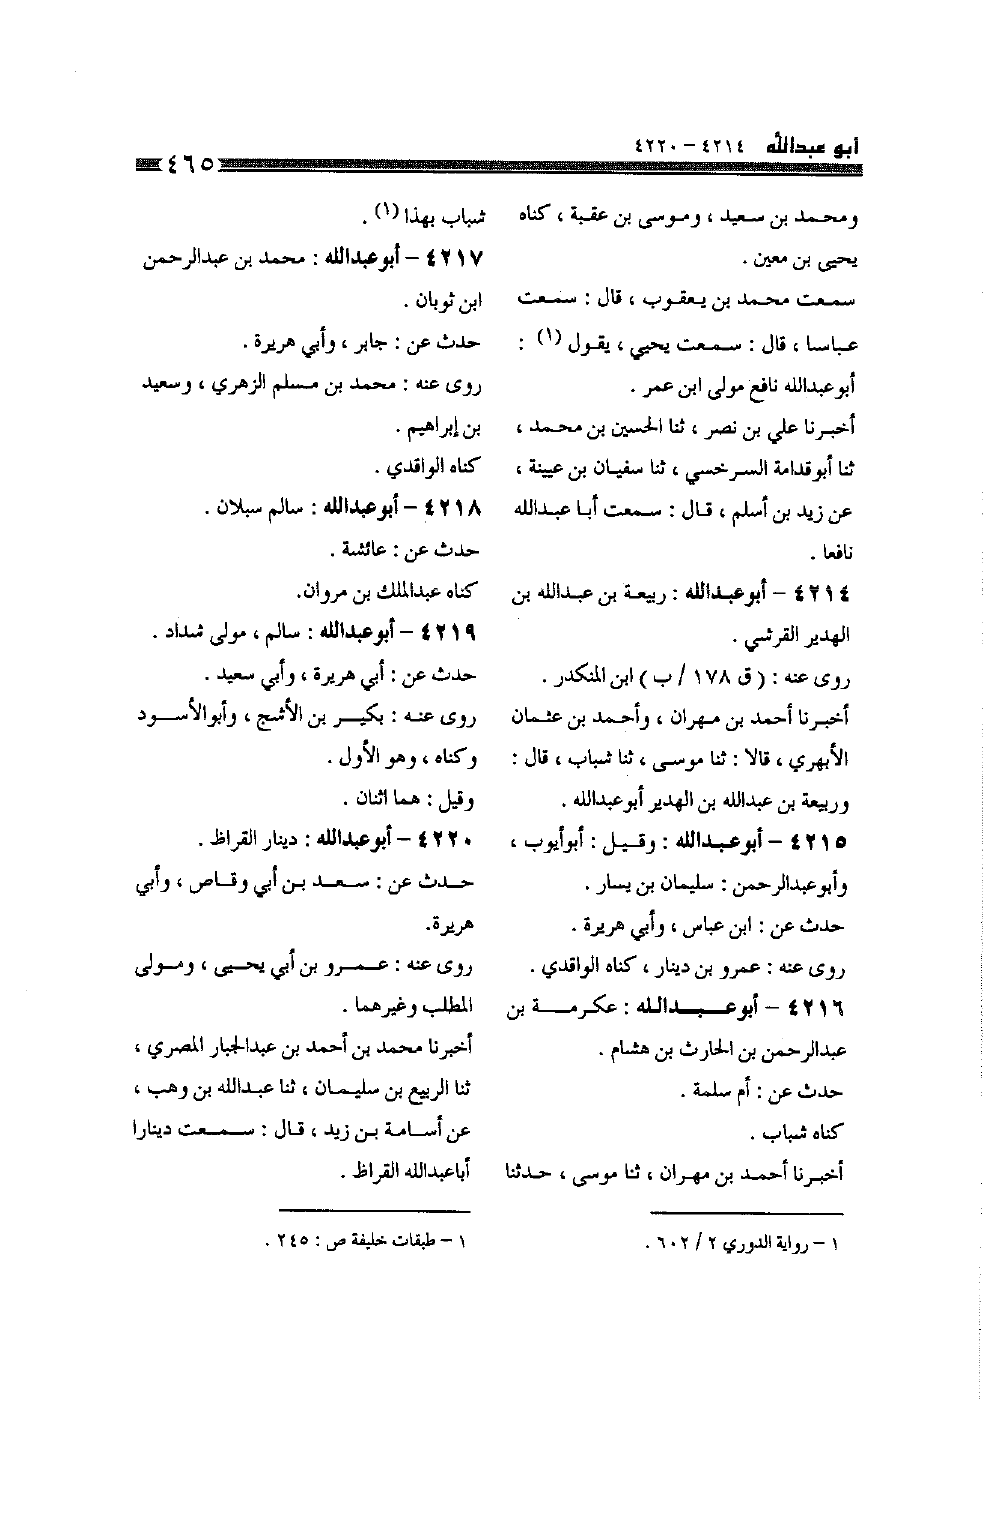 أبو عبدالله ٤٢١٤ – ٤٢٢٠
٤٦٥
ومحمد بن سعيد ، وموسى بن عقبة ، كناه
يحيى بن معين .
سمعت محمد بن يعقوب ، قال : سمعت
عباسا ، قال : سمعت يحيي ، يقول (١) :
أبوعبدالله نافع مولى ابن عمر .
أخبرنا علي بن نصر ، ثنا الحسين بن محمد ،
ثنا أبوقدامة السرخسي ، ثنا سفيان بن عيينة ،
عن زيد بن أسلم ، قال : سمعت أبا عبدالله
نافعا .
٤٢١٤ – أبوعبدالله : ربيعة بن عبدالله بن
الهدير القرشي .
روى عنه : ( ق ١٧٨ / ب ) ابن المنكدر .
أخبرنا أحمد بن مهران ، وأحمد بن عثمان
الأبهري ، قالا : ثنا موسى ، ثنا شباب ، قال :
وربيعة بن عبدالله بن الهدير أبوعبدالله .
٤٢١٥ – أبوعبدالله : وقيل : أبوأيوب ،
وأبوعبدالرحمن : سليمان بن يسار .
حدث عن : ابن عباس ، وأبي هريرة .
روى عنه : عمرو بن دينار ، كناه الواقدي .
٤٢١٦ – أبوعبدالله : عكرمة بن
عبدالرحمن بن الحارث بن هشام .
حدث عن : أم سلمة .
كناه شباب .
أخبرنا أحمد بن مهران ، ثنا موسى ، حدثنا
١ – رواية الدوري ٢ / ٦٠٢ .
شباب بهذا (١) .
٤٢١٧ – أبوعبدالله : محمد بن عبدالرحمن
ابن ثوبان .
حدث عن : جابر ، وأبي هريرة .
روى عنه : محمد بن مسلم الزهري ، وسعيد
بن إبراهيم .
كناه الواقدي .
٤٢١٨ – أبوعبدالله : سالم سبلان .
حدث عن : عائشة .
كناه عبدالملك بن مروان.
٤٢١٩ – أبوعبدالله : سالم ، مولى شداد .
حدث عن : أبي هريرة ، وأبي سعيد .
روى عنه : بكير بن الأشج ، وأبوالأسود
وكناه ، وهو الأول .
وقيل : هما اثنان .
٤٢٢٠ – أبوعبدالله : دينار القراظ .
حدث عن : سعد بن أبي وقاص ، وأبي
هريرة.
روى عنه : عمرو بن أبي يحيى ، ومولى
المطلب وغيرهما .
أخبرنا محمد بن أحمد بن عبدالجبار المصري ،
ثنا الربيع بن سليمان ، ثنا عبدالله بن وهب ،
عن أسامة بن زيد ، قال : سمعت دينارا
أباعبدالله القراظ .
١ – طبقات خليفة ص : ٢٤٥ .